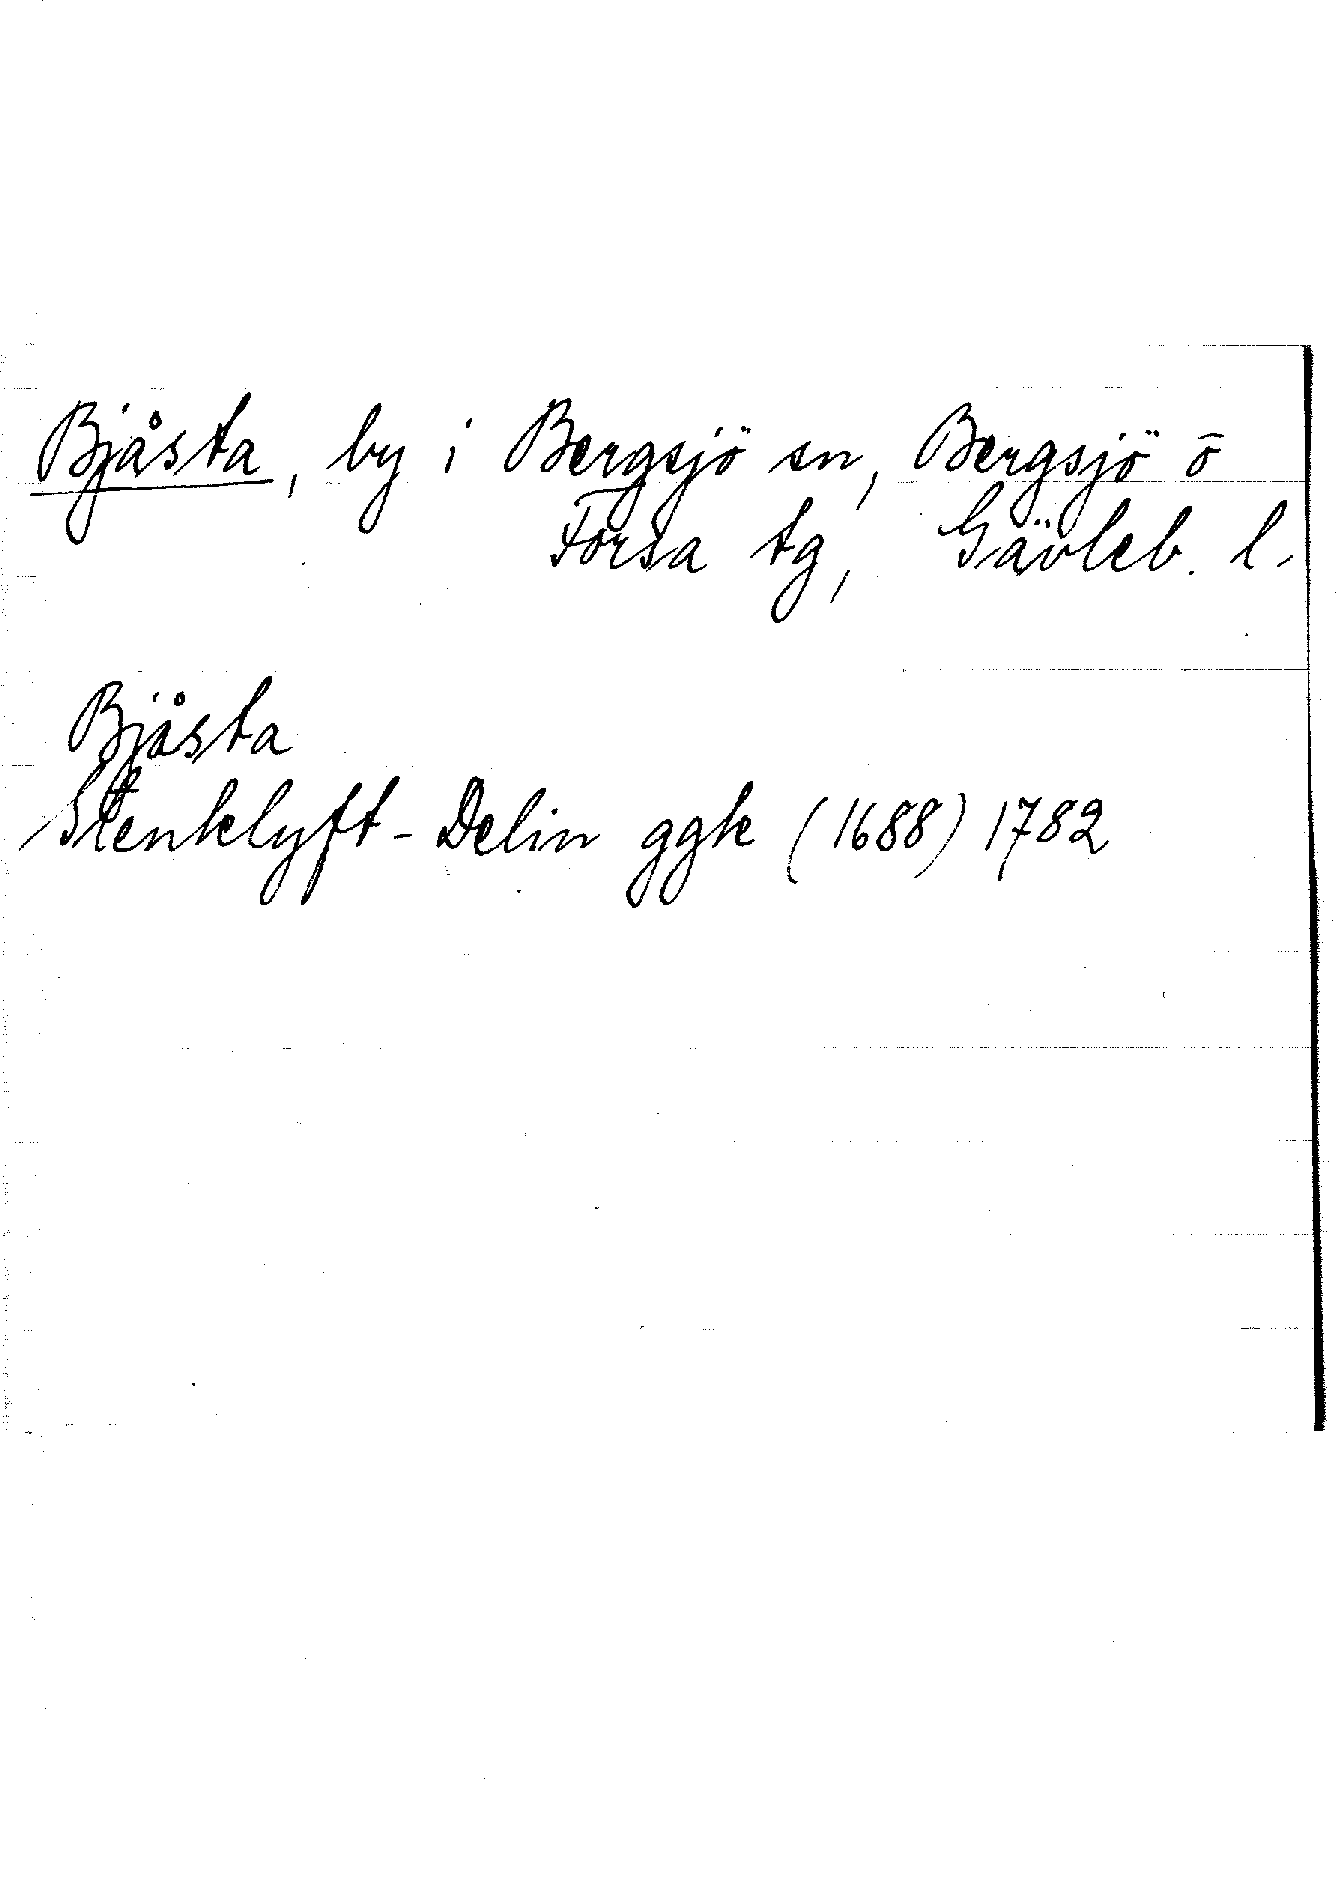 Bjåsta, by i Bergsjö sn, Bergsjö ö
Forsa tg, Gävleb. l.
Bjåsta
Stenklyft-Delin ggk (1688) 1782